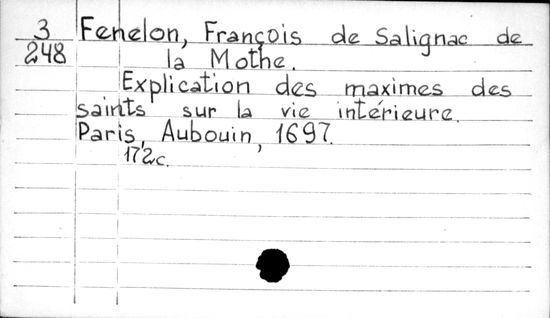 3 Fenelon, François de Salignac de
248 la Mothe.
Explication des maximes des
saints sur la vie intérieure.
Paris, Aubouin, 1697.
172c.